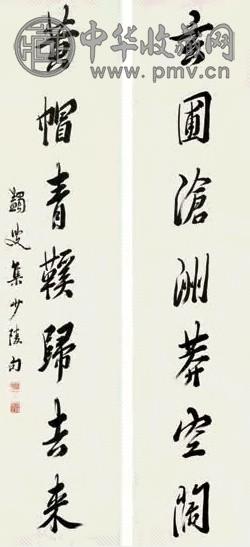 中华收藏网
www.pmv.cn
玄圃滄洲莽空闊
黄帽青鞵歸去来
蠲叟集少陵句